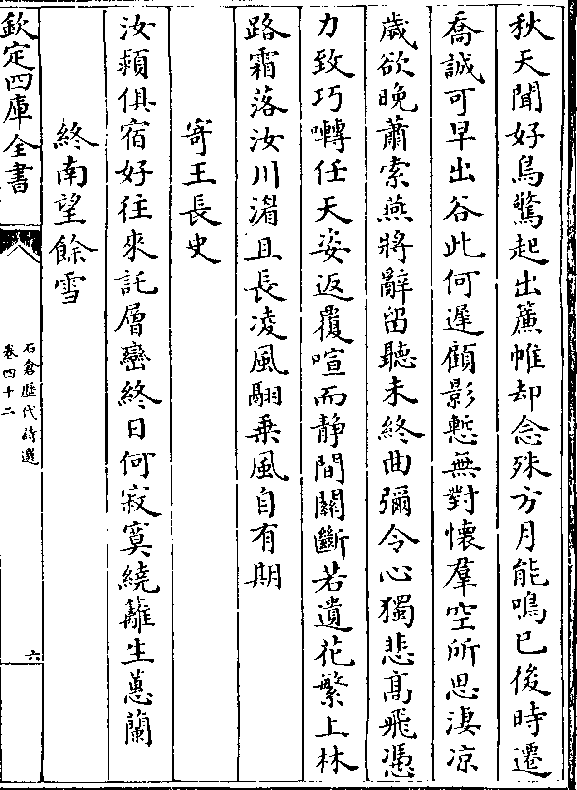 秋天聞好鳥驚起出簾帷却念殊方月能鳴已後時遷
喬誠可早出谷此何遲顧影慙無對懷羣空所思淒凉
歲欲晚蕭索燕將辭留聽未終曲彌令心獨悲髙飛憑
力致巧囀任天姿返覆喧而静間關斷若遺花繁上林
路霜落汝川湄且長凌風翮乗風自有期
寄王長史
汝潁俱宿好往來託層巒終日何寂寞繞籬生蕙蘭
終南望餘雪
欽定四庫全書
石倉歴代詩選
卷四十二
六